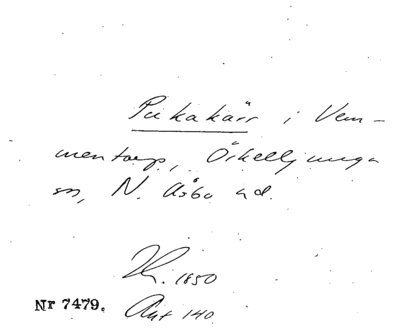 Pukakärr i Vem-
mentorp, Örkelljunga
sn, N. Åsbo hd.
1850
Nr 7479. Akt 140